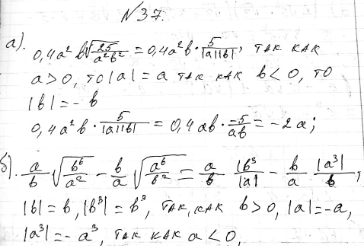 №37.
а). 0,4a² b√(25/a²b²) = 0,4a²b · 5/|a||b|, так как
a>0, то |a| = a так как b<0, то
|b| = - b
0,4a²b · 5/|a||b| = 0,4ab · -5/ab = -2a;
б). a/b √(b⁶/a²) - b/a √(a⁶/b²) = a/b · |b³|/|a| - b/a · |a³|/b;
|b| = b, |b³| = b³, так, как b>0, |a| = -a,
|a³| = - a³, так как a<0,